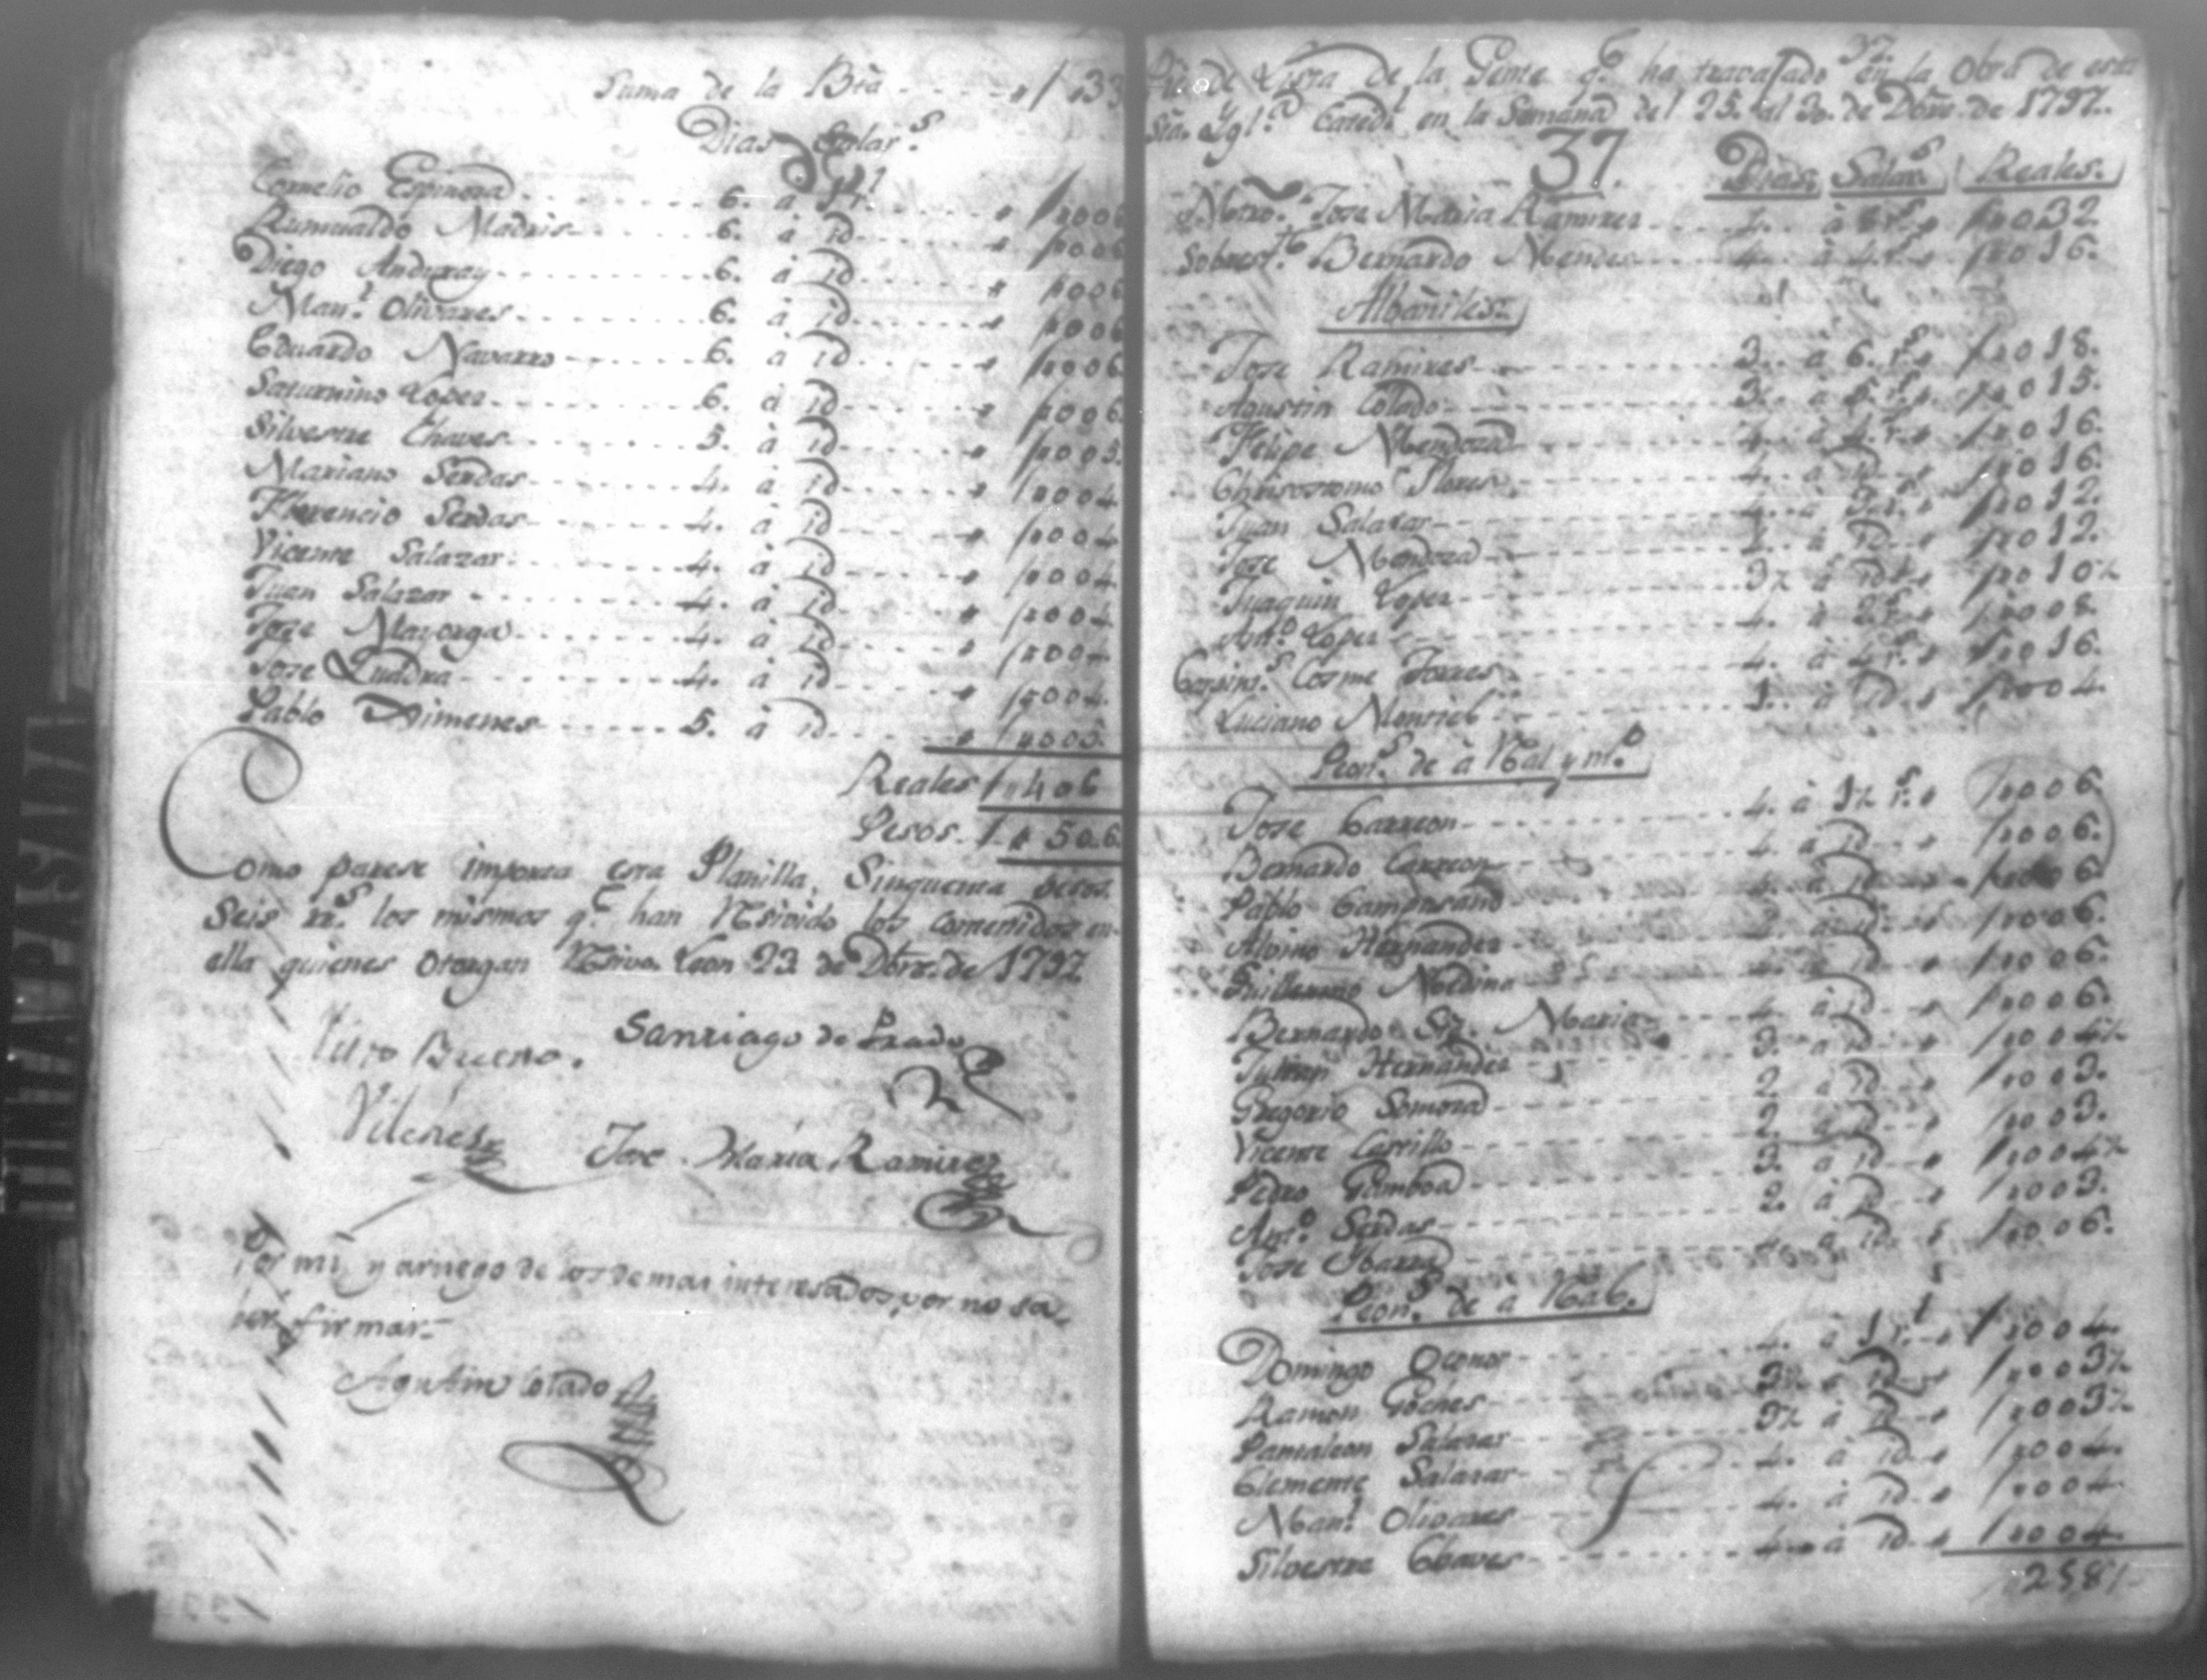 Suma de la Bta ---- " / " 33
Dias Salar.s
Cornelio Espinosa ---- 6. à 1 r.l ---- " / " 006
Rumualdo Madris ---- 6. à id ---- " / " 006
Diego Anduray ---- 6. à id ---- " / " 006
Man.l Olivares ---- 6. à id ---- " / " 006
Eduardo Navarro ---- 6. à id ---- " / " 006
Saturnino Lopez ---- 6. à id ---- " / " 006
Silvestre Chaves ---- 5. à id ---- " / " 005
Mariano Serdas ---- 4. à id ---- " / " 004
Florencio Serdas ---- 4. à id ---- " / " 004
Vicente Salazar ---- 4. à id ---- " / " 004
Juan Salazar ---- 4. à id ---- " / " 004
Jose Mayorga ---- 4. à id ---- " / " 004
Jose Quadra ---- 4. à id ---- " / " 004.
Pablo Ximenes ---- 5. à id ---- " / " 005.
Reales / " 406
Pesos / " 50.6
Como parese importa esta Planilla, Sinquenta pesos
Seis rr.s los mismos q.e han Resivido los contenidos en
ella quienes otorgan Resivo. Leon 23 de Dbre. de 1797.
Visto Bueno. Santiago de Prado
Vilches Jose Maria Ramirez
Por mi, y arruego de los demas interesados, por no sa-
ber firmar.-
Agustin Colado
37.
Pie de Lista de la Gente q.e ha travajado en la Obra de esta
Sta. Ygl.a Catedl. en la Semana del 25. al 30. de Dbre. de 1797.
37. Dias. Salar.s Reales.
Mtro. Jose Maria Ramires ---- 4. à 8 r.s / " 032
Sobrest.e Bernardo Mendes ---- 4. à 4 r.s / " 016.
Albañiles
Jose Ramires ---- 3. à 6. r.s / " 018.
Agustin Colado ---- 3. à 5. r.s / " 015.
Felipe Mendoza ---- 4. à 4 r.s / " 016.
Chrisostomo Flores ---- 4. à id / " 016.
Juan Salazar ---- 4. à 3 r.s / " 012.
Jose Mendoza ---- 4. à id / " 012.
Juaquin Lopez ---- 3½ à id / " 010½
Ant.o Lopez ---- 4. à 2 r.s / " 008.
Carpint.s Cosme Torres ---- 4. à 4 r.s / " 016.
Luciano Montiel ---- 1. à id / " 004.
Peon.s de à Real y m.o
Jose Carreon ---- 4. à 1½ r.s / " 006.
Bernardo Carreon ---- 4. à id / " 006.
Pablo Campusano ---- 4. à id / " 006.
Albino Hernandez ---- 4. à id / " 006.
Guillermo Medina ---- 4. à id / " 006.
Bernardo Sta. Maria ---- 4. à id / " 006.
Julian Hernandez ---- 3. à id / " 004½
Gregorio Somoza ---- 2. à id / " 003.
Vicente Carrillo ---- 2. à id / " 003.
Pedro Gamboa ---- 3. à id / " 004½
Ant.o Serdas ---- 2. à id / " 003.
Jose Ibarra ---- 4. à id / " 006.
Peon.s de a Real.
Domingo Oconor ---- 4. à 1 r.l / " 004.
Ramon Goches ---- 3½ à id / " 003½
Pantaleon Salazar ---- 3½ à id / " 003½
Clemente Salazar ---- 4. à id / " 004.
Man.l Olivares ---- 4. à id / " 004
Silvestre Chaves ---- 4. à id / " 004
258½